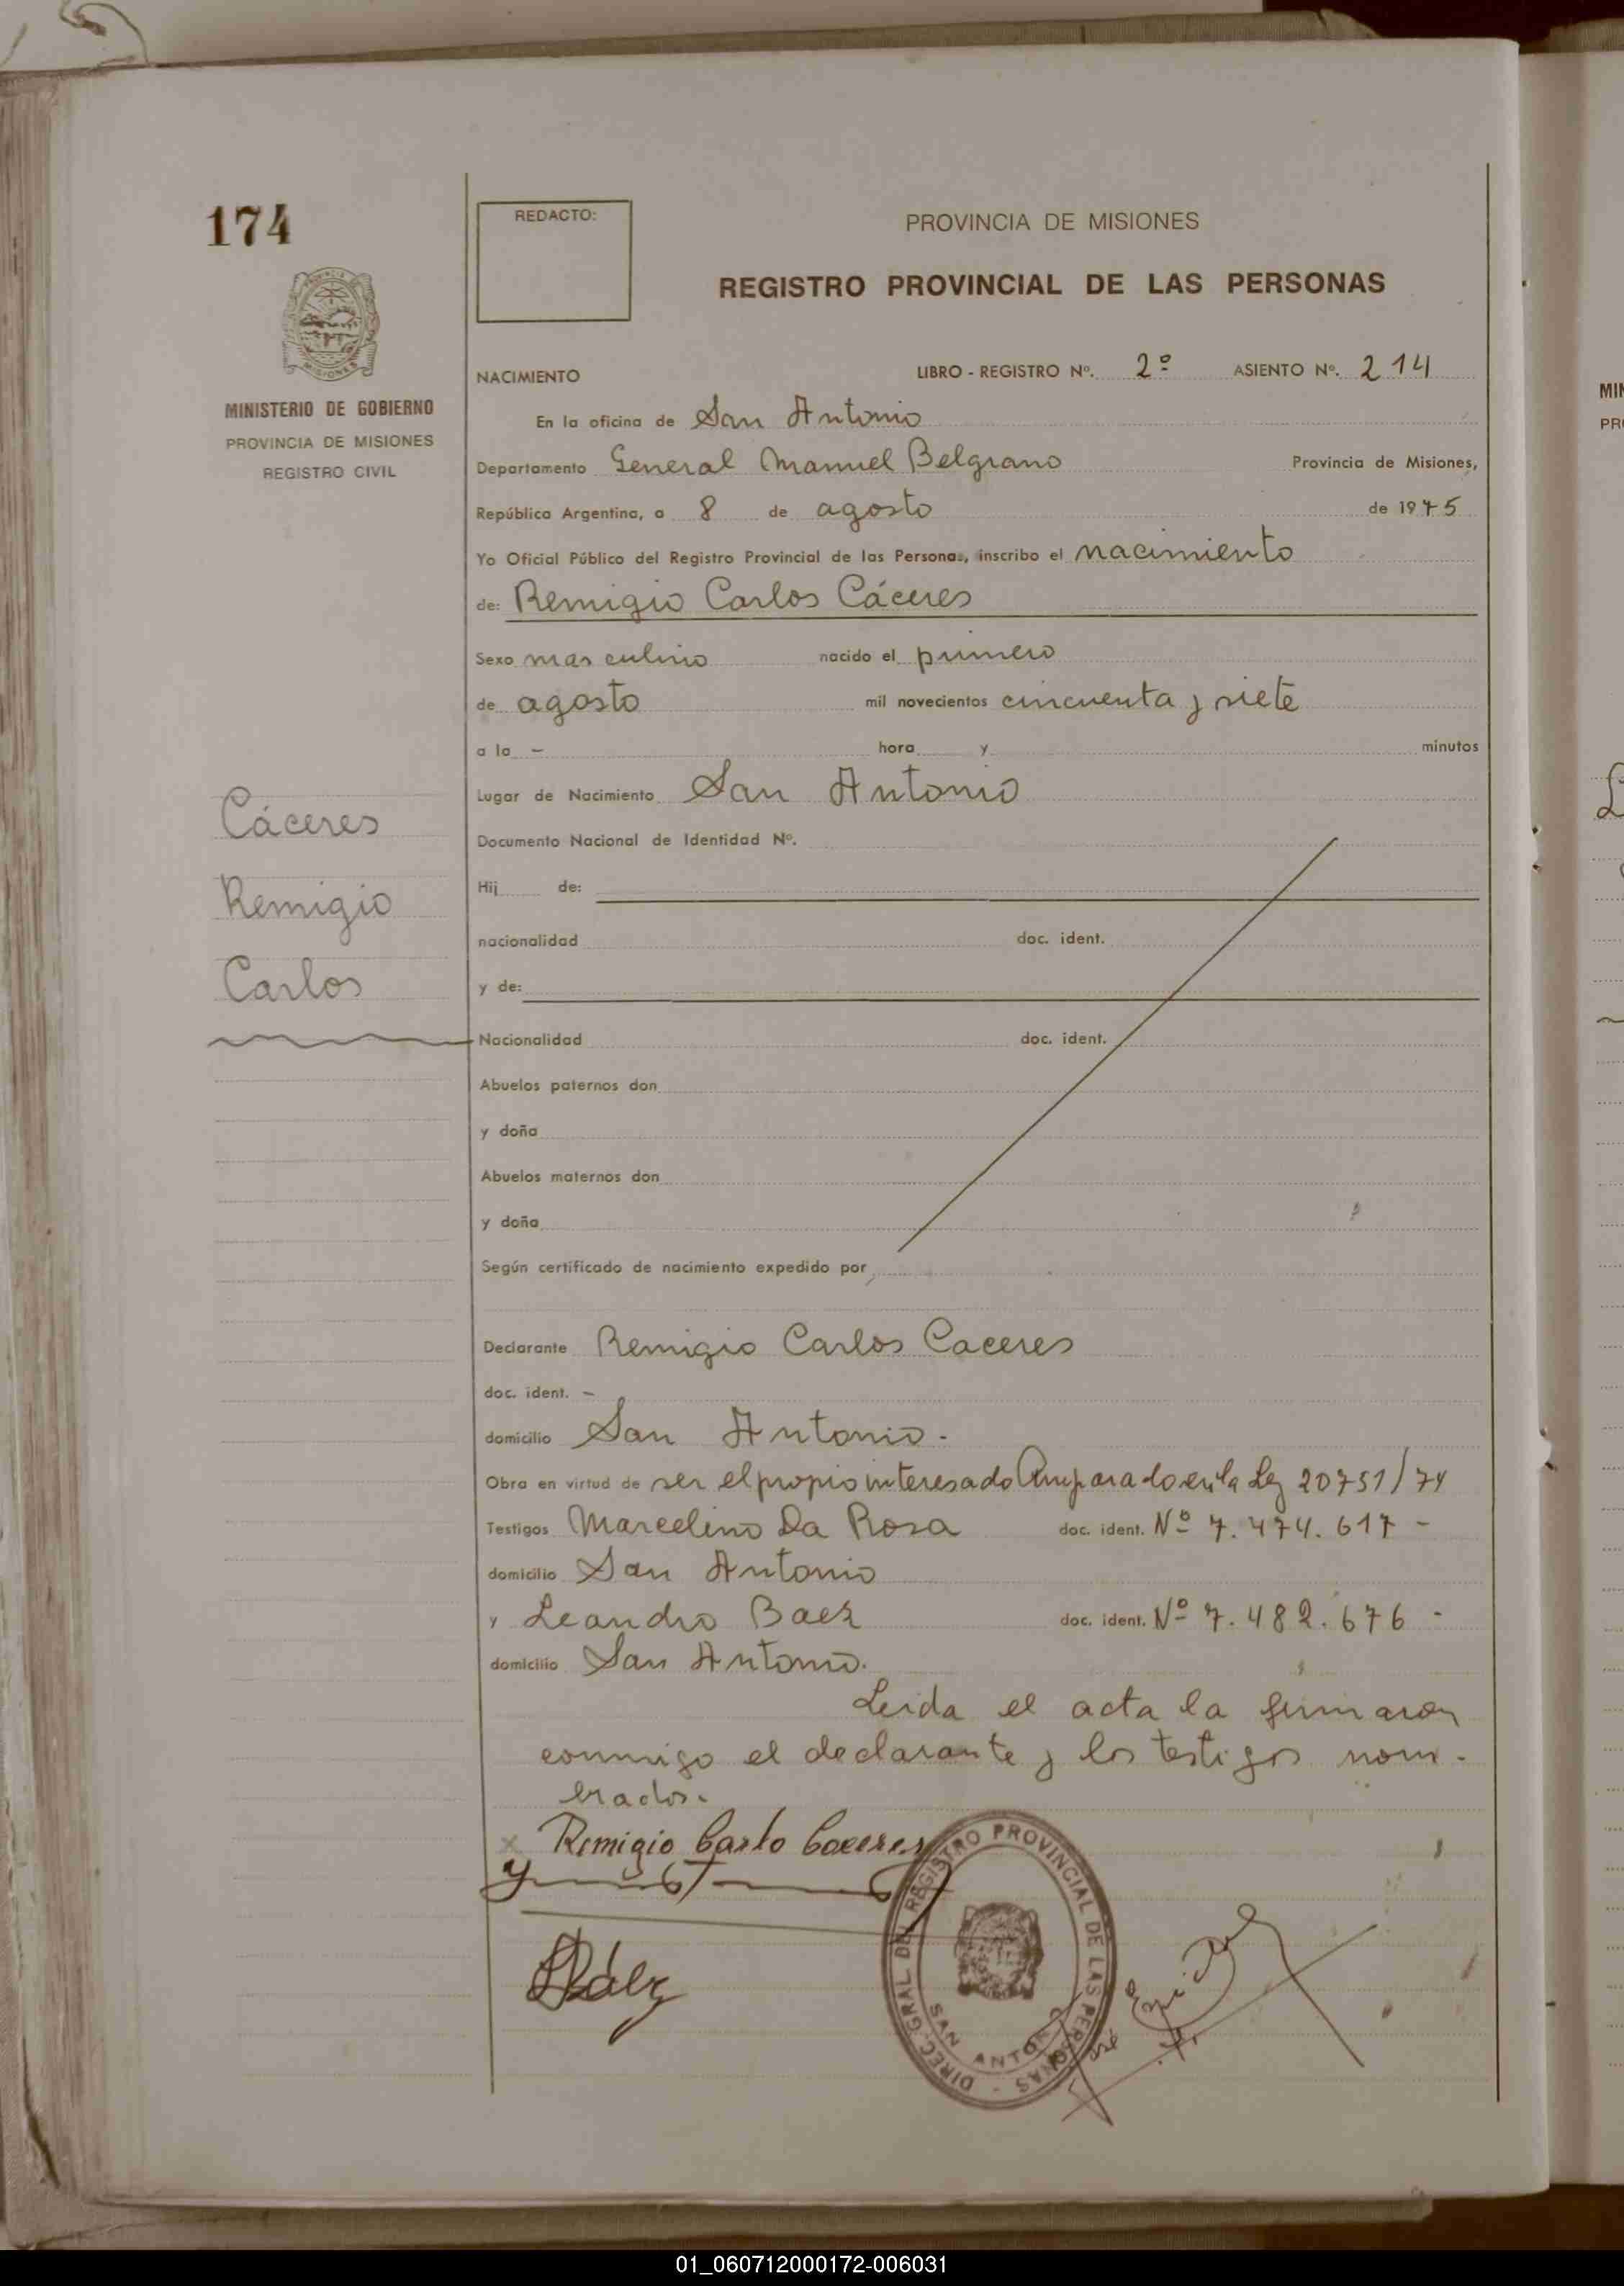 174
REDACTO:
PROVINCIA DE MISIONES
REGISTRO PROVINCIAL DE LAS PERSONAS
MINISTERIO DE GOBIERNO
PROVINCIA DE MISIONES
REGISTRO CIVIL
NACIMIENTO LIBRO - REGISTRO Nº. 2º ASIENTO Nº. 214
En la oficina de San Antonio
Departamento General Manuel Belgrano Provincia de Misiones,
República Argentina, a 8 de agosto de 1975
Yo Oficial Público del Registro Provincial de las Personas, inscribo el nacimiento
de: Remigio Carlos Cáceres
Sexo masculino nacido el primero
de agosto mil novecientos cincuenta y siete
a la - hora y minutos
Lugar de Nacimiento San Antonio
Cáceres
Remigio
Carlos
Documento Nacional de Identidad Nº.
Hij de:
nacionalidad doc. ident.
y de:
Nacionalidad doc. ident.
Abuelos paternos don
y doña
Abuelos maternos don
y doña
Según certificado de nacimiento expedido por
Declarante Remigio Carlos Caceres
doc. ident. -
domicilio San Antonio.
Obra en virtud de ser el propio interesado Amparado en la Ley 20751/74
Testigos Marcelino Da Rosa doc. ident. Nº 7.474.617 -
domicilio San Antonio
y Leandro Baez doc. ident. Nº 7.482.676 -
domicilio San Antonio.
Leida el acta la firmaron
conmigo el declarante y los testigos nom-
brados.
x Remigio Carlo Caceres
Báez
DIREC. GRAL DEL REGISTRO PROVINCIAL DE LAS PERSONAS -
SAN ANTONIO
01_060712000172-006031